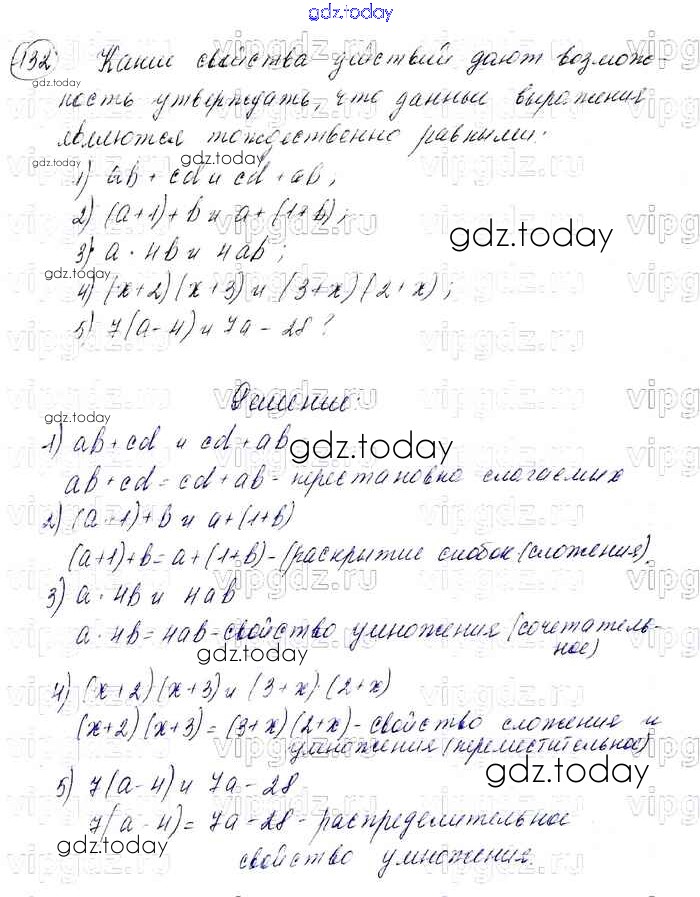 gdz.today
132) Какие свойства действий дают возмож-
ность утверждать, что данные выражения
являются тождественно равными:
1) ab + cd и cd + ab;
2) (a+1)+b и a+(1+b);
3) a · 4b и 4ab;
4) (x+2)(x+3) и (3+x)(2+x);
5) 7(a-4) и 7a-28?
Решение:
1) ab+cd и cd+ab
ab+cd = cd+ab - перестановка слагаемых
2) (a+1)+b и a+(1+b)
(a+1)+b = a+(1+b) - (раскрытие скобок (сложения).
3) a · 4b и 4ab
a · 4b = 4ab - свойство умножения (сочетатель-
ное)
4) (x+2)(x+3) и (3+x)·(2+x)
(x+2)(x+3) = (3+x)(2+x) - свойство сложения и
умножения (переместительное)
5) 7(a-4) и 7a-28
7(a-4) = 7a-28 - распределительное
свойство умножения.